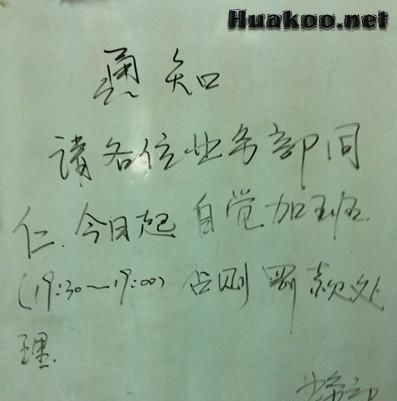 Huakoo.net
通知
请各位业务部同
仁.今日起自觉加班.
(19:30~19:00)否则罚款处
理.
业务部